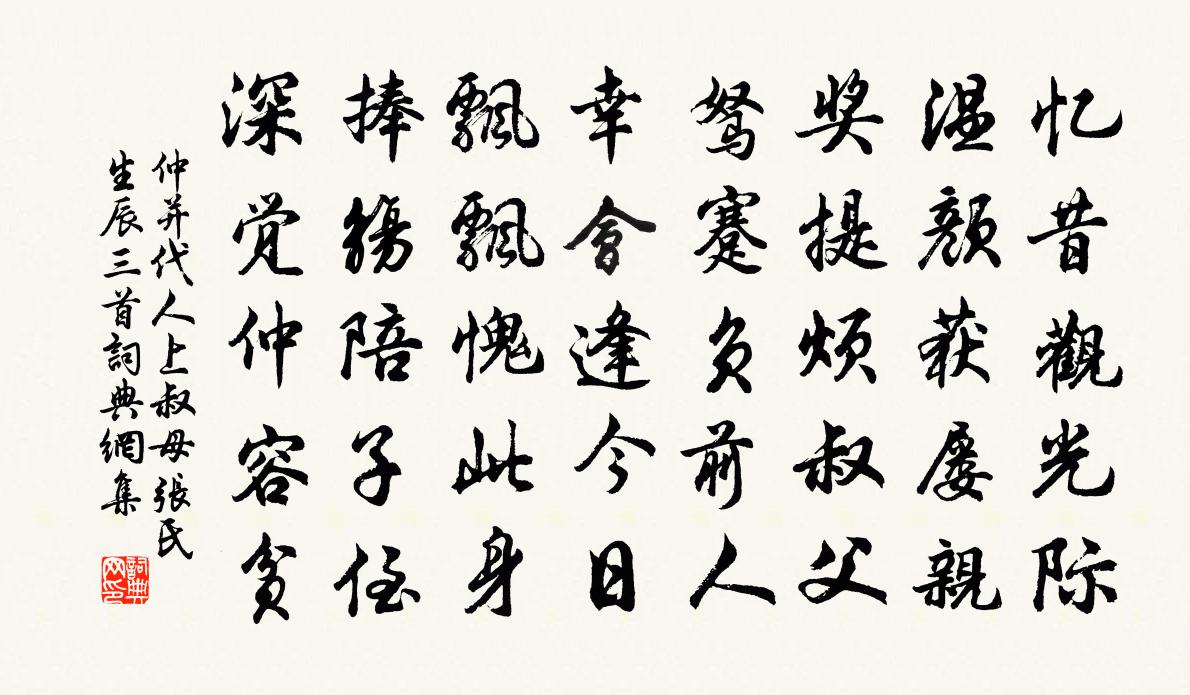 忆昔觀光际
温颜获屡親
奖提烦叔父
驽蹇负前人
幸會逢今日
飘飘愧此身
捧觞陪子侄
深觉仲容贫
仲并代人上叔母張氏
生辰三首詞典網集
詞典
网印